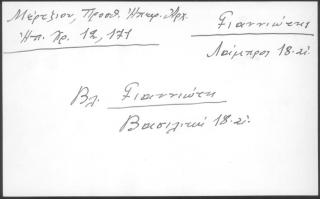 Μέρτζιον, Προσθ. Ηπειρ. Αρχ.
Ηπ. Χρ. 12, 171
Γιαννιώτη
Λάμπρος 18. αἰ.
Βλ. Γιαννιώτη
Βασιλική 18. αἰ.